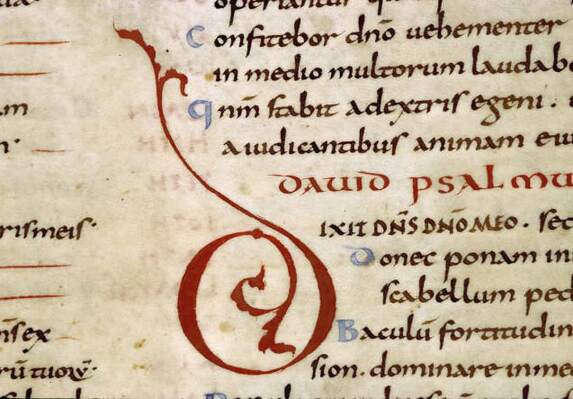 am
rismeis·
n̄sex
rū tuoꝝ·
operiantur
Confitebor dn̄o uehementer
in medio multorum laudabo
Qnm̄ stabit adextris egeni·
aiudicantibus animam
DAUID PSALMU
DIXIT DN̄S DN̄O MEO· sec
Donec ponam in
scabellum ped
Baculū fortitudin
sion· dominare inme